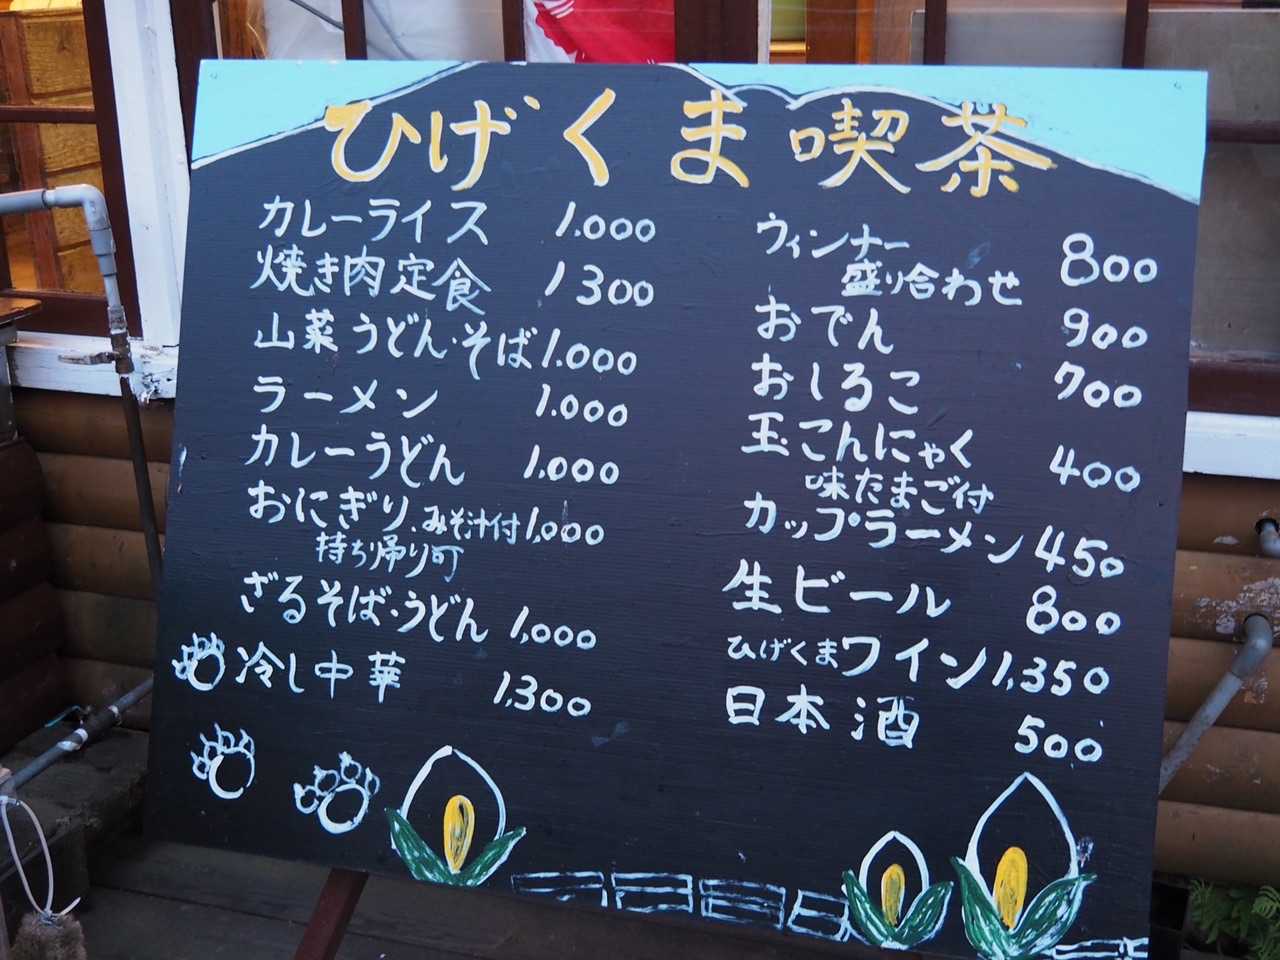 ひげくま喫茶
カレーライス 1.000
焼き肉定食 1300
山菜うどん・そば 1.000
ラーメン 1.000
カレーうどん 1,000
おにぎり、みそ汁付 1,000
持ち帰り可
ざるそば・うどん 1,000
冷し中華 1,300
ウィンナー
盛り合わせ 800
おでん 900
おしるこ 700
玉こんにゃく 400
味たまご付
カップラーメン 450
生ビール 800
ひげくまワイン 1,350
日本酒 500